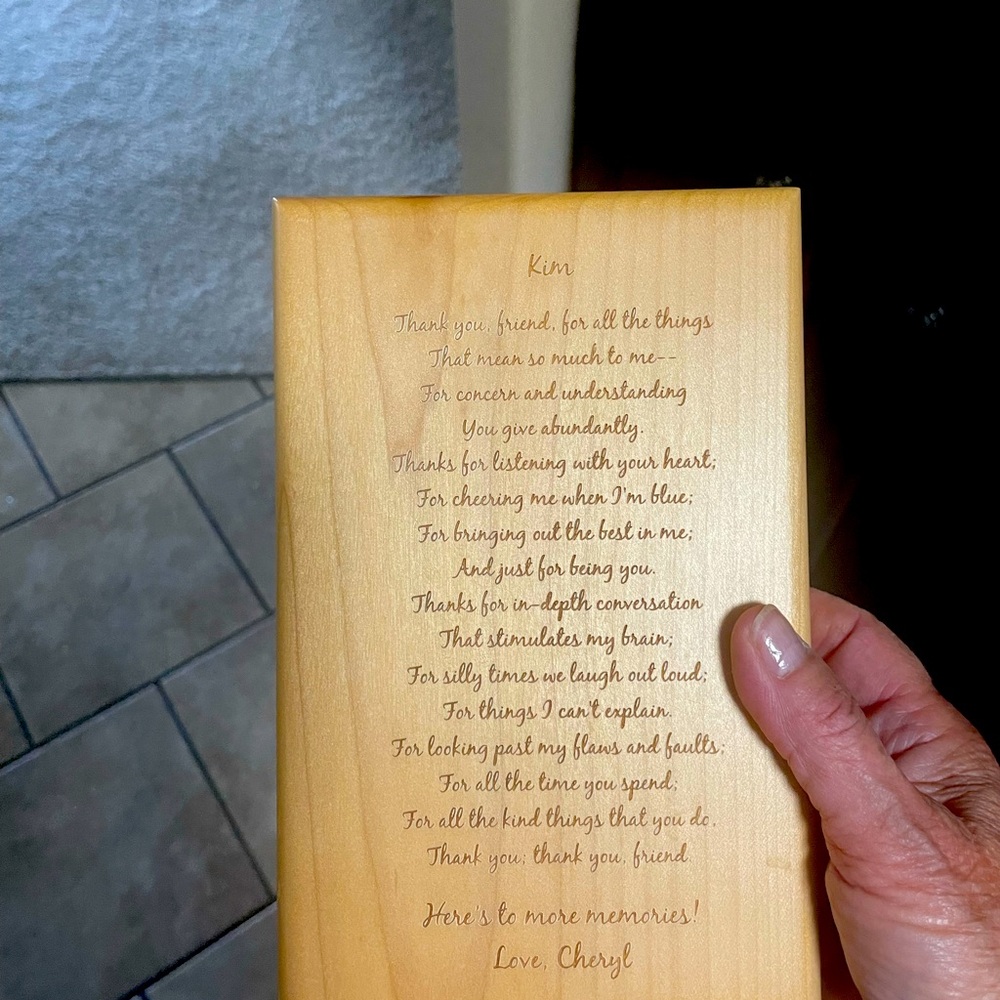 Kim
Thank you, friend, for all the things
That mean so much to me--
For concern and understanding
You give abundantly.
Thanks for listening with your heart;
For cheering me when I'm blue;
For bringing out the best in me;
And just for being you.
Thanks for in-depth conversation
That stimulates my brain;
For silly times we laugh out loud;
For things I can't explain.
For looking past my flaws and faults;
For all the time you spend;
For all the kind things that you do,
Thank you; thank you, friend.
Here's to more memories!
Love, Cheryl